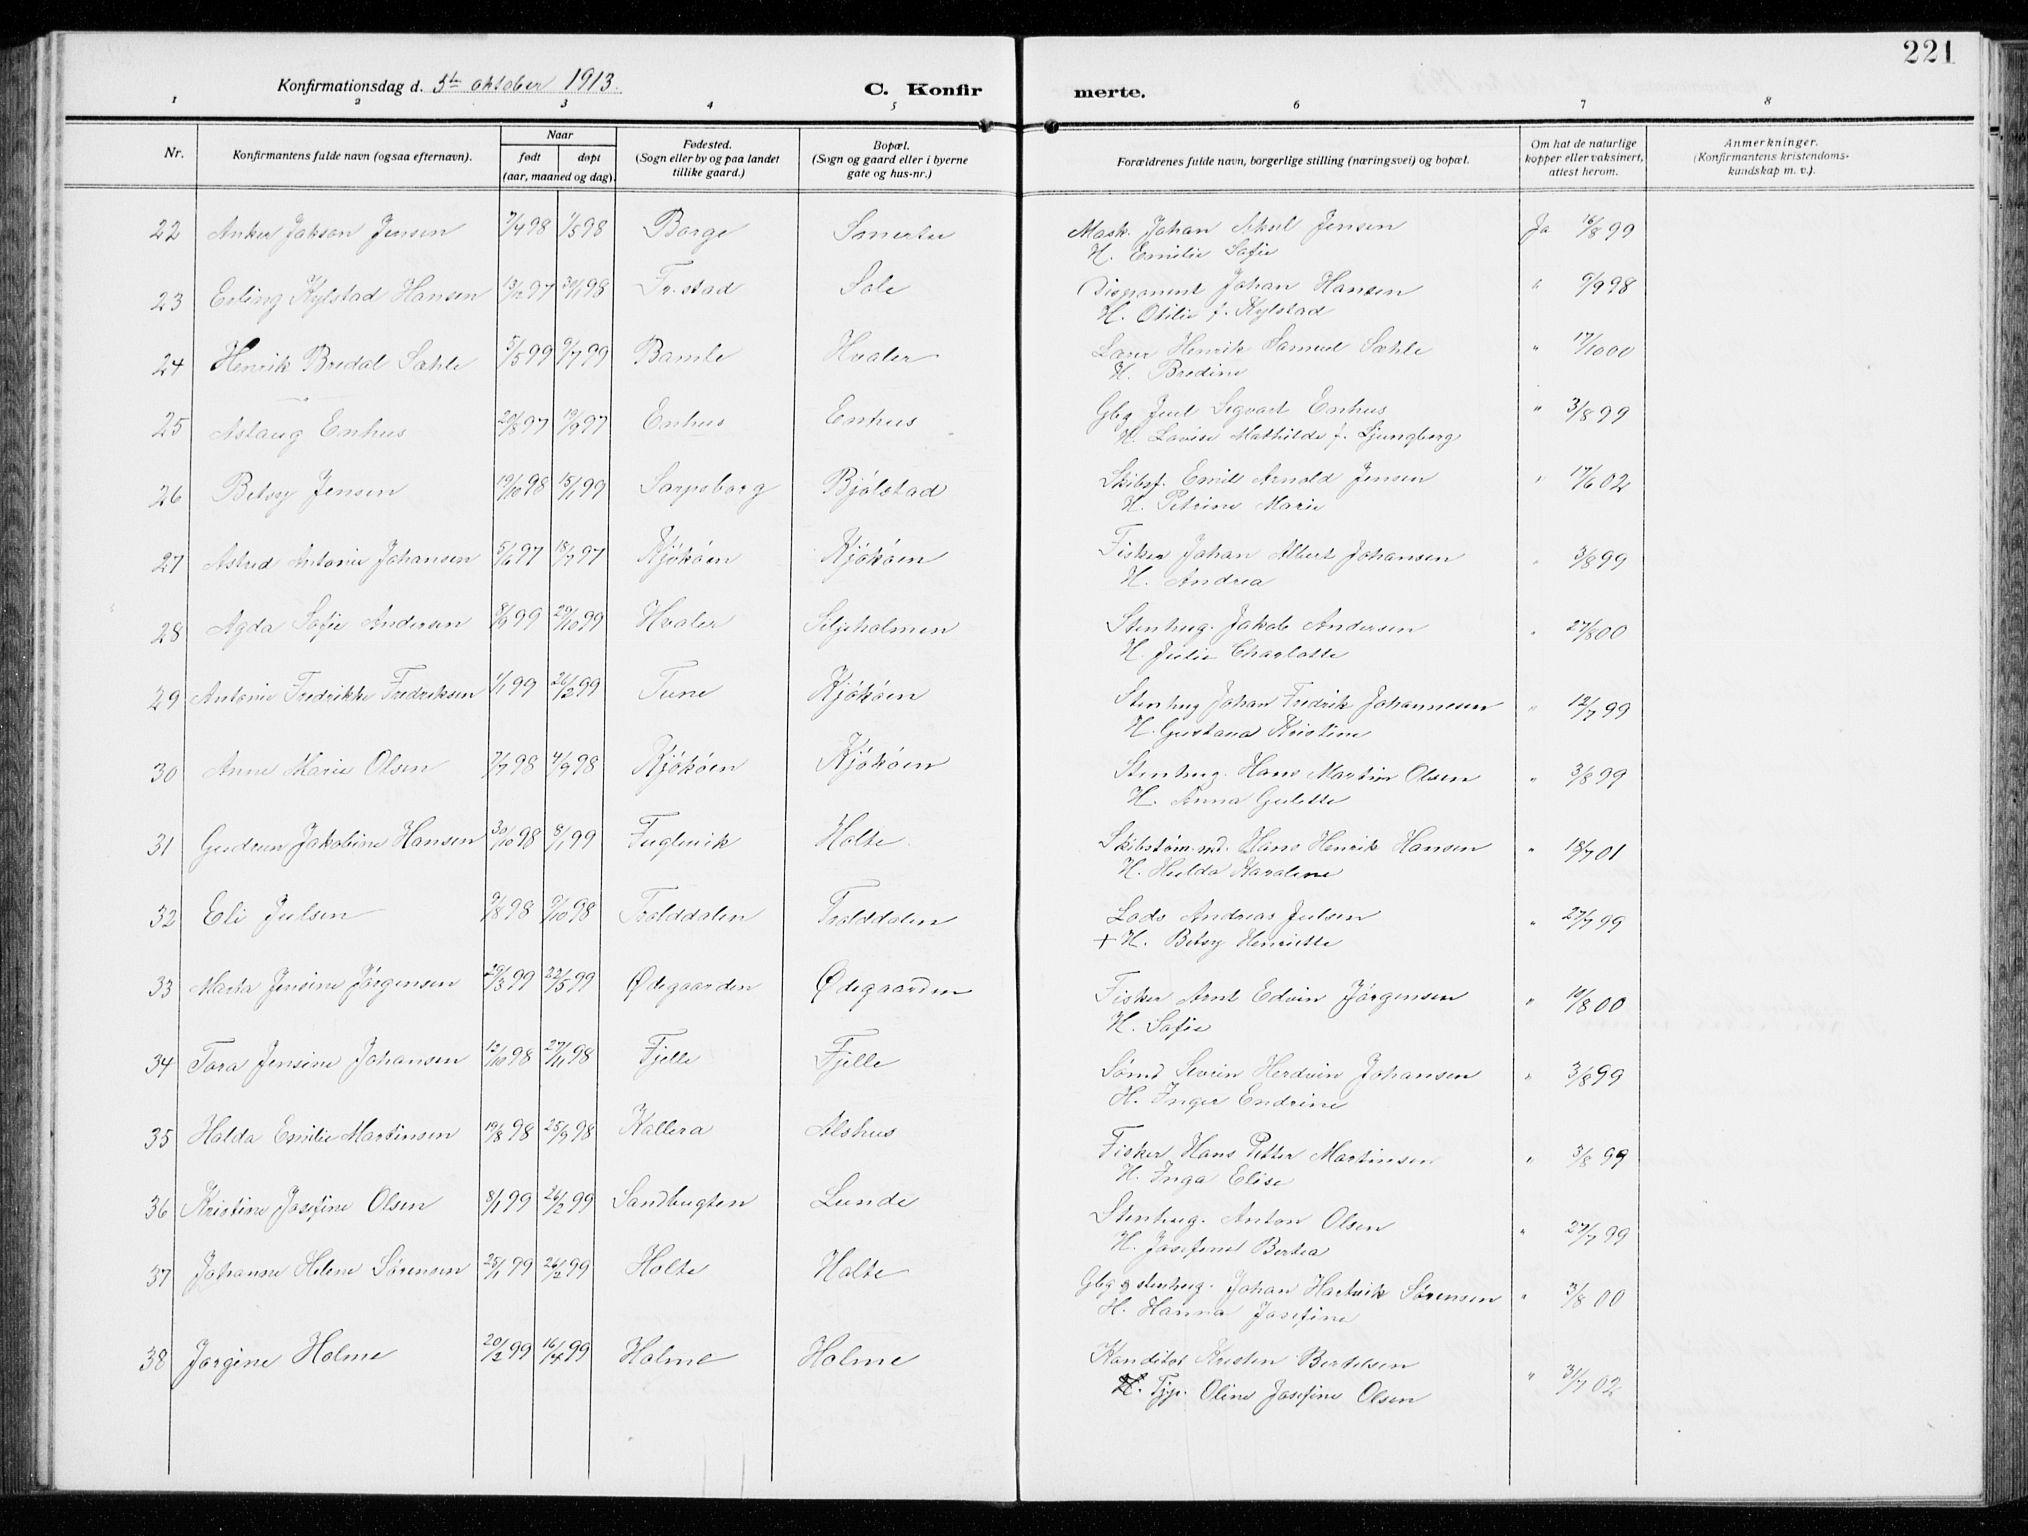 221
Konfirmationsdag d. 5te oktober 1913.
C. Konfir merte.
1 2 3 4 5 6 7 8
Nr.
Konfirmantens fulde navn (ogsaa efternavn).
Naar
født døpt
(aar, maaned og dag).
Fødested.
(Sogn eller by og paa landet
tillike gaard.)
Bopæl.
(Sogn og gaard eller i byerne
gate og hus-nr.)
Forældrenes fulde navn, borgerlige stilling (næringsvei) og bopæl.
Om hat de naturlige
kopper eller vaksinert,
attest herom.
Anmerkninger.
(Konfirmantens kristendoms-
kundskap m. v.).
22 Anker Jensen 7/4 98 1/5 98 Borge Mask. Johan Jensen Ja 16/8 99
H. Emilie Sofie
23 Erling Kylstad Hansen 13/12 97 30/1 98 Fr.stad Sole Disponent Johan Hansen " 9/9 98
H. Otilie f. Kylstad
24 Henrik Bredal Sæhle 5/5 99 9/7 99 Bamle Hvaler Lærer Henrik Samuel Sæhle " 17/10 00
H. Bredine
25 Aslaug Enhus 20/8 97 19/9 97 Enhus Enhus Gbg Juel Sigvart Enhus " 3/8 99
H. Lovise Mathilde f. Ljungberg
26 Betsy Jensen 19/10 98 15/1 99 Sarpsborg Bjølstad Skibsf. Emil Arnold Jensen " 17/6 02
H. Petrine Marie
27 Astrid Antonie Johansen 5/6 97 18/7 97 Kjøkøen Kjøkøen Fisker Johan Albert Johansen " 3/8 99
H. Andrea
28 Agda Sofie Andersen 8/9 99 29/10 99 Hvaler Seljeholmen Stenhug. Jakob Andersen " 27/8 00
H. Julie Charlotte
29 Antonie Fredrikke Fredriksen 1/1 99 26/2 99 Tune Kjøkøen Stenhug Johan Fredrik Johannesen " 12/7 99
H. Gustava Kristine
30 Anne Marie Olsen 7/7 98 4/9 98 Kjøkøen Kjøkøen Stenhug. Hans Martin Olsen " 3/8 99
H. Anna Gulette
31 Gudrun Jakobine Hansen 30/10 98 8/1 99 Fuglevik Holte Skibstøm.md. Hans Henrik Hansen " 18/7 01
H. Hulda Karoline
32 Eli Julsen 9/8 98 9/10 98 Trolddalen Trolddalen Lods Andreas Julsen " 27/7 99
+ H. Betsy Henriette
33 Marta Jensine Jørgensen 29/3 99 22/5 99 Ødegaarden Ødegaarden Fisker Arnt Edvin Jørgensen " 10/8 00
H. Sofie
34 Tora Jensine Johansen 12/10 98 27/11 98 Fjelle Fjelle Sømd Severin Herdvin Johansen " 3/8 99
H. Inger Endrine
35 Halda Emilie Martinsen 19/8 98 25/9 98 Kallera Alshus Fisker Hans Petter Martinsen " 3/8 99
H. Inga Elise
36 Kristine Josefine Olsen 8/1 99 26/2 99 Sandbugten Lunde Stenhug. Anton Olsen " 27/7 99
H. Josefine Bertea
37 Johanne Helene Sørensen 25/1 99 26/2 99 Holte Holte Gbg & stenhug. Johan Hartvik Sørensen " 3/8 00
H. Hanna Josefine
38 Jørgine Holme 20/2 99 16/4 99 Holme Holme Kanditot Kristen Bertelsen " 31/7 02
Tjp. Oline Josefine Olsen